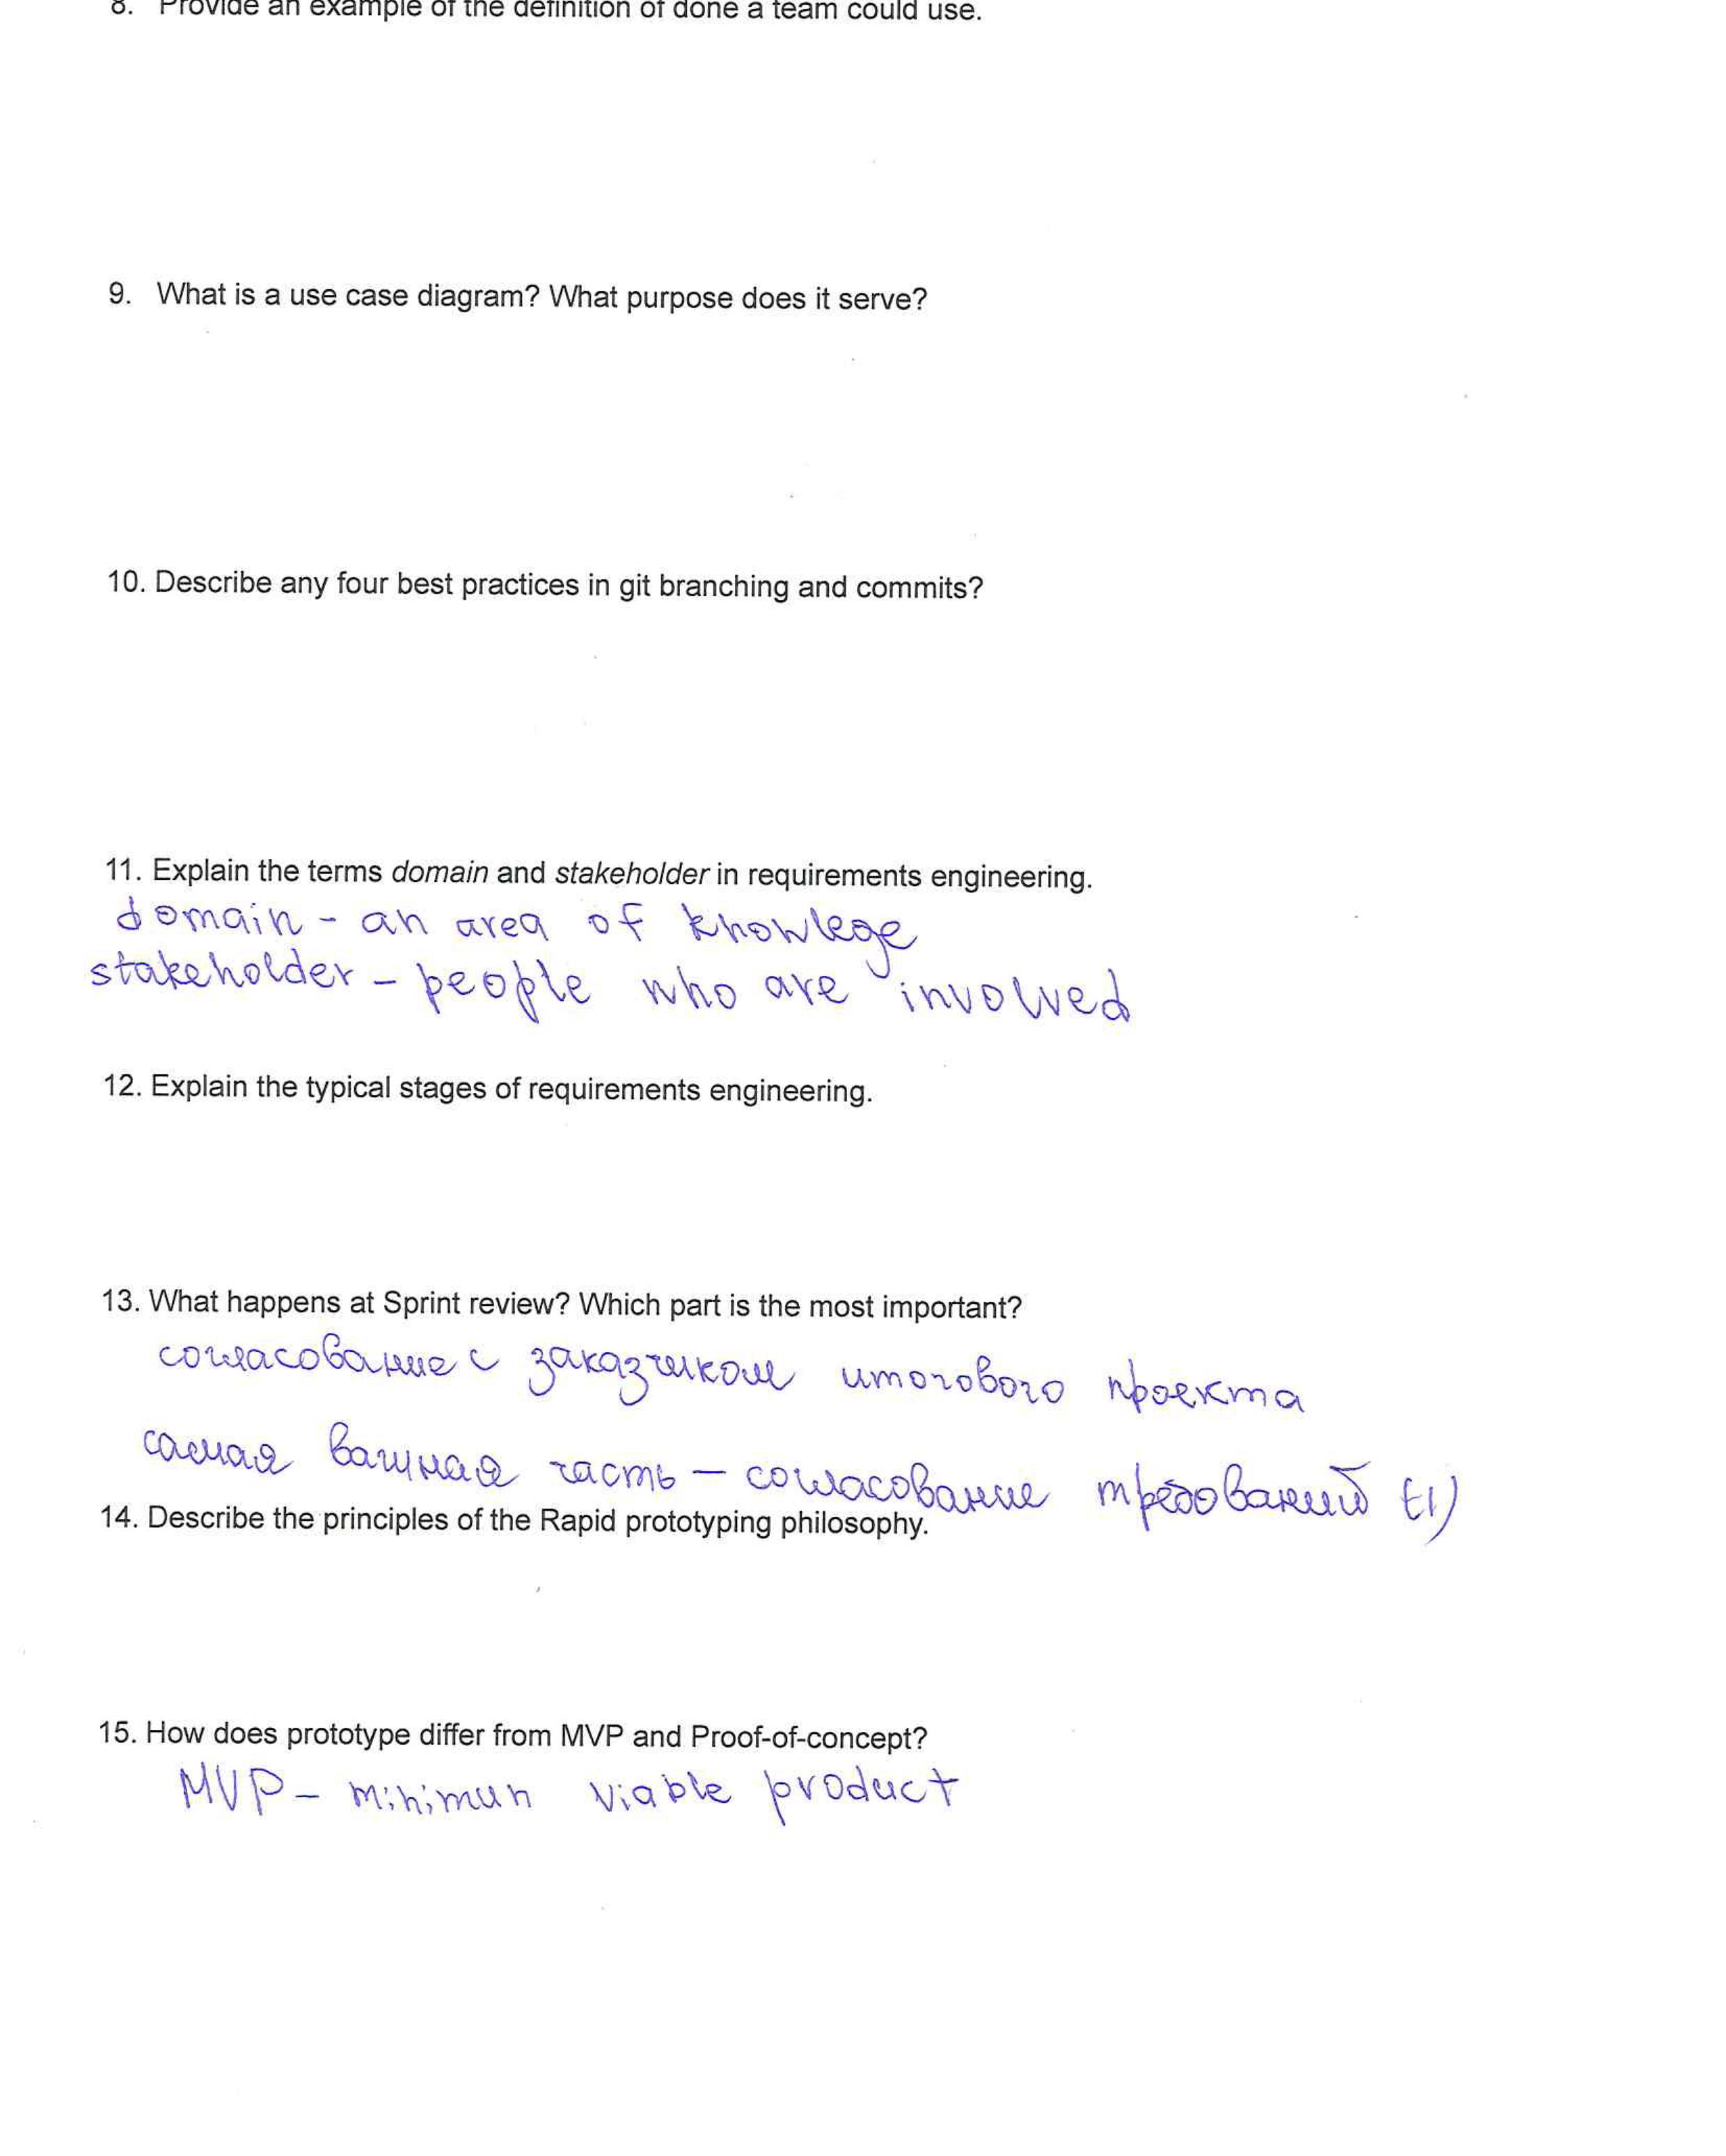 8. Provide an example of the definition of done a team could use.
9. What is a use case diagram? What purpose does it serve?
10. Describe any four best practices in git branching and commits?
11. Explain the terms domain and stakeholder in requirements engineering.
domain - an area of knowlege
stakeholder - people who are involved
12. Explain the typical stages of requirements engineering.
13. What happens at Sprint review? Which part is the most important?
согласование с заказчиком итогового проекта
самая важная часть - согласование требований
14. Describe the principles of the Rapid prototyping philosophy.
15. How does prototype differ from MVP and Proof-of-concept?
MVP - minimun viable product